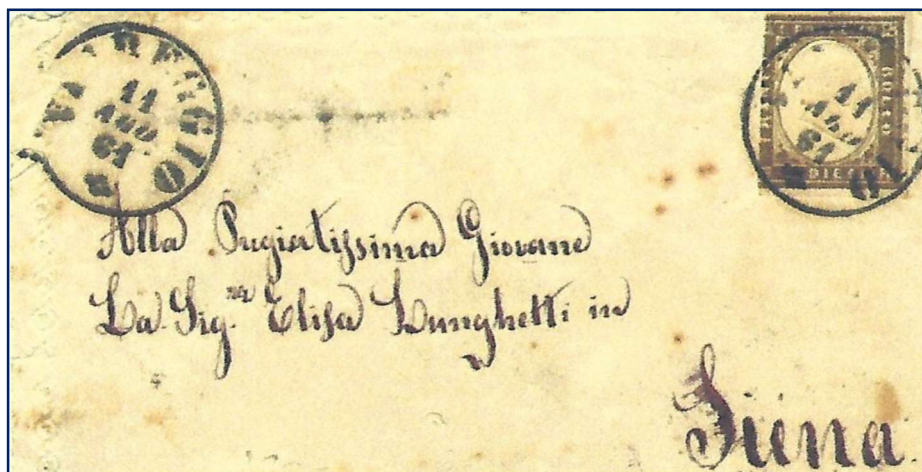 VIAREGGIO
11
AGO
61
11
AGO
61
Alla Pregiatissima Giovane
La Sig.ra Elisa Lunghetti in
Siena